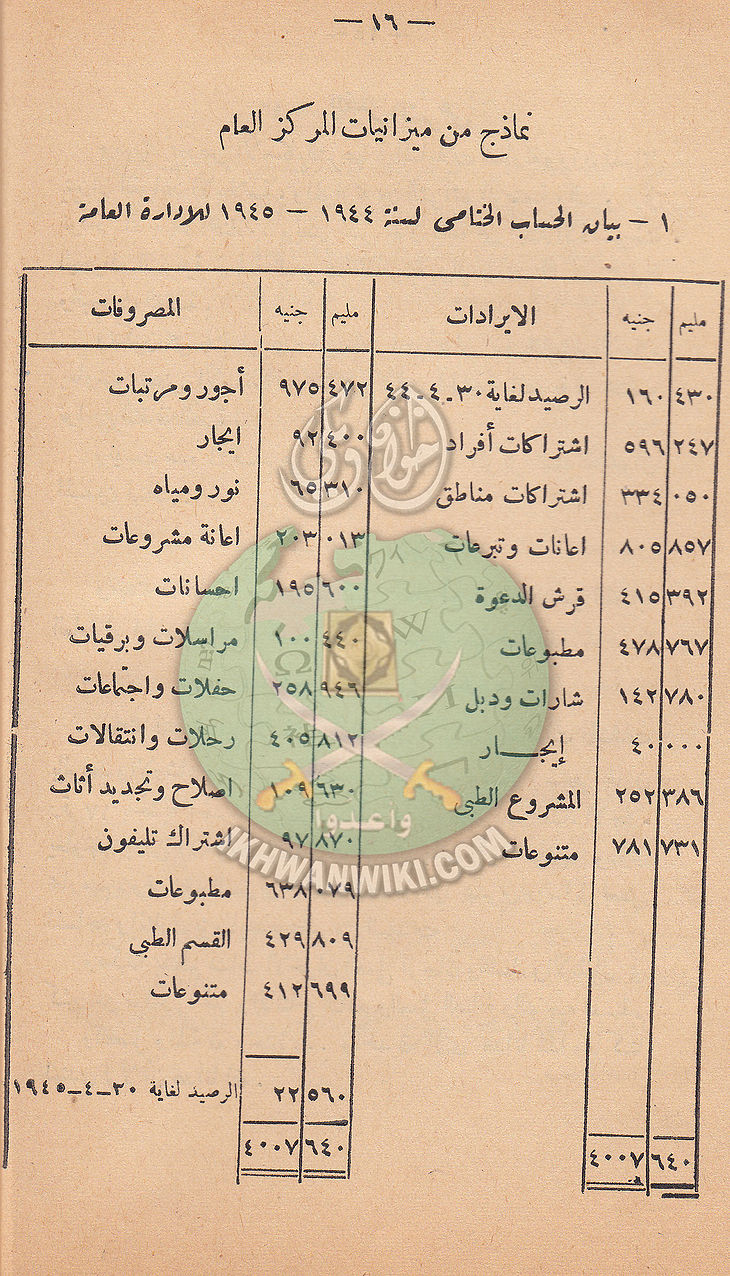 — ١٦ —
نماذج من ميزانيات المركز العام
١ — بيان الحساب الختامى لسنة ١٩٤٤ — ١٩٤٥ للإدارة العامة
مليم جنيه الايرادات مليم جنيه المصروفات
٤٣٠ ١٦٠ الرصيد لغاية ٣٠ـ٤ـ٤٤ ٤٧٢ ٩٧٥ أجور ومرتبات
٢٤٧ ٥٩٦ اشتراكات أفراد ٤٠٠ ٩٢ ايجار
٠٥٠ ٣٣٤ اشتراكات مناطق ٣١٠ ٦٥ نور ومياه
٨٥٧ ٨٠٥ اعانات وتبرعات ٠١٣ ٢٠٣ اعانة مشروعات
٣٩٢ ٤١٥ قرش الدعوة ٦٠٠ ١٩٥ احسانات
٧٦٧ ٤٧٨ مطبوعات ٤٤٠ ١٠٠ مراسلات وبرقيات
٧٨٠ ١٤٢ شارات ودبل ٩٤٦ ٢٥٨ حفلات واجتماعات
٠٠٠ ٤٠ إيجــــار ٨١٢ ٤٠٥ رحلات وانتقالات
٣٨٦ ٢٥٢ المشروع الطبى ٦٣٠ ١٠٩ اصلاح وتجديد أثاث
٧٣١ ٧٨١ متنوعات ٨٧٠ ٩٧ اشتراك تليفون
٠٧٩ ٦٣٨ مطبوعات
٨٠٩ ٤٢٩ القسم الطبي
٦٩٩ ٤١٢ متنوعات
٥٦٠ ٢٢ الرصيد لغاية ٣٠ــ٤ــ١٩٤٥
٦٤٠ ٤٠٠٧ ٦٤٠ ٤٠٠٧
إخوان ويكي
وأعدوا
IKHWANWIKI.COM